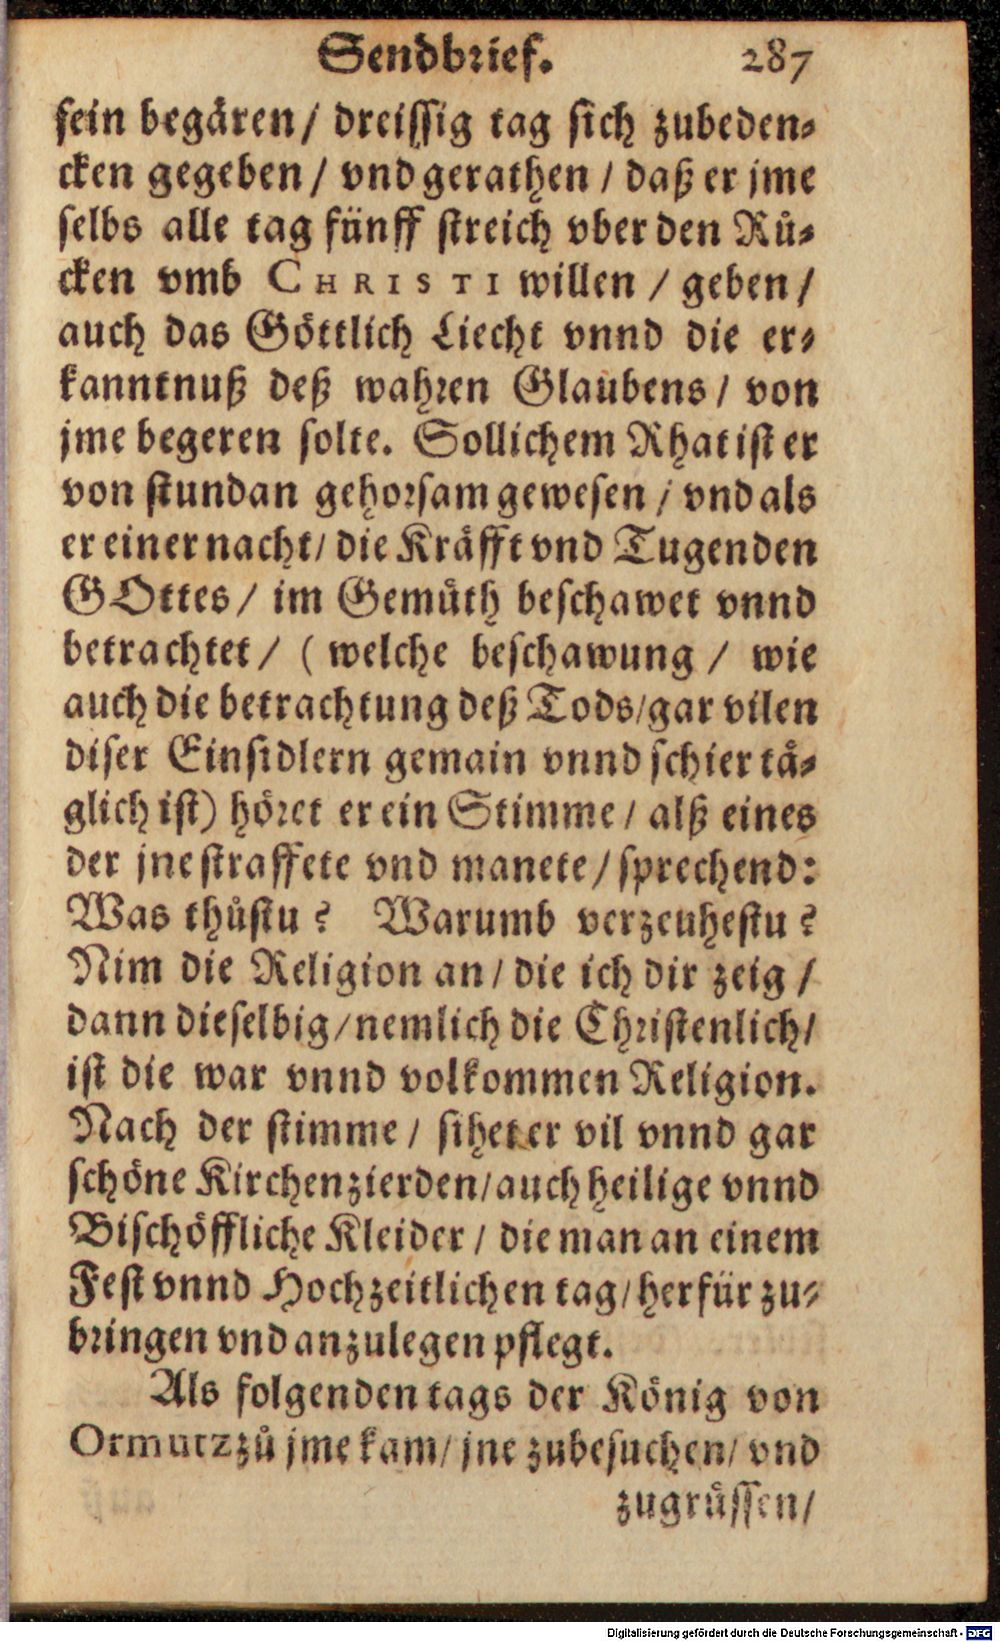 Sendbrief. 287
sein begären/ dreissig tag sich zubeden⸗
cken gegeben/ vnd gerathen/ daß er jme
selbs alle tag fünff streich vber den Ruͤ⸗
cken vmb CHRISTI willen / geben/
auch das Göttlich Liecht vnnd die er⸗
kanntnuß deß wahren Glaubens/ von
jme begeren solte. Sollichem Rhat ist er
von stundan gehorsam gewesen/ vnd als
er einer nacht/ die Kräfft vnd Tugenden
GOttes/ im Gemuͤth beschawet vnnd
betrachtet/ (welche beschawung/ wie
auch die betrachtung deß Tods/gar vilen
diser Einsidlern gemain vnnd schier tä⸗
glich ist) höret er ein Stimme/ alß eines
der jne straffete vnd manete/sprechend:
Was thuͤstu? Warumb verzeuhestu?
Nim die Religion an/ die ich dir zeig/
dann dieselbig/nemlich die Christenlich/
ist die war vnnd volkommen Religion.
Nach der stimme/ sihet er vil vnnd gar
schöne Kirchenzierden/auch heilige vnnd
Bischöffliche Kleider/ die man an einem
Fest vnnd Hochzeitlichen tag/herfür zu⸗
bringen vnd anzulegen pflegt.
Als folgenden tags der König von
Ormutz zů jme kam/ jne zubesuchen/ vnd
zugruͤssen/
Digitalisierung gefördert durch die Deutsche Forschungsgemeinschaft - DFG